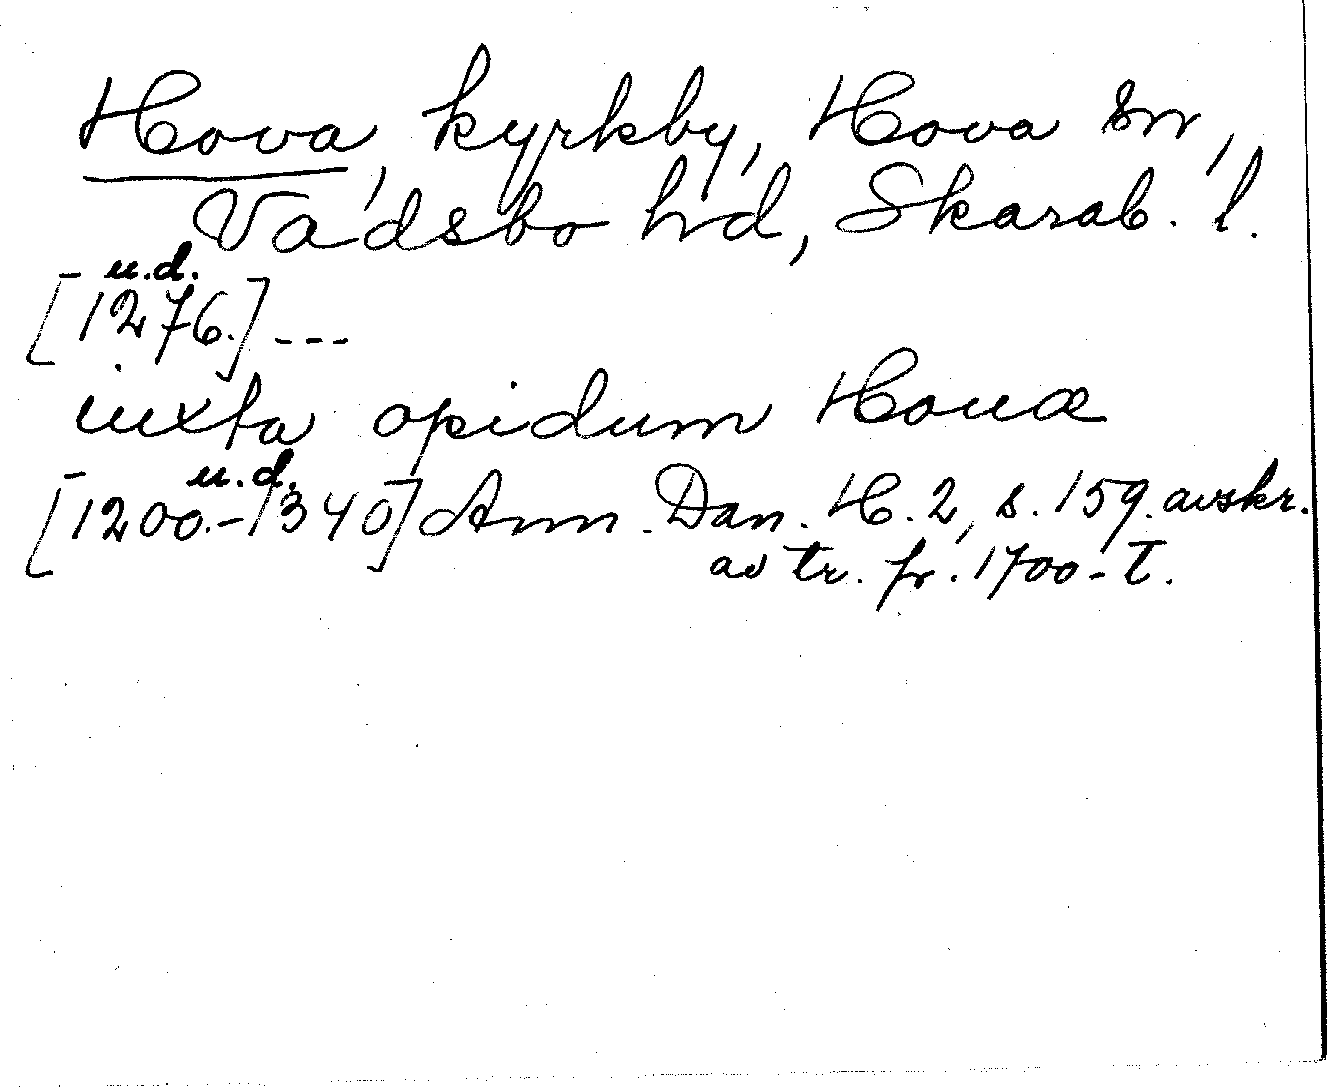 Hova, kyrkby, Hova sn,
Vadsbo hd, Skarab. l.
u.d.
[1276.] ---
iuxta opidum Houæ
u.d.
[1200.-1340] Ann. Dan. H. 2, s. 159. avskr.
av tr. fr. 1700-t.